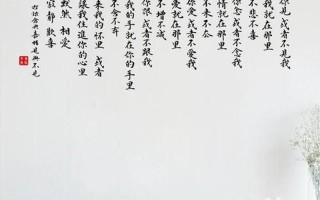 你見 或者不見我
我就在那里
不悲不喜
你念 或者不念我
情就在那里
不来不去
你愛 或者不愛我
愛就在那里
不增不减
你跟 或者不跟我
我的手就在你的手里
不舍不弃
来我的怀里 或者
讓我住進你的心里
默然 相愛
寂静 歡喜
見與不見